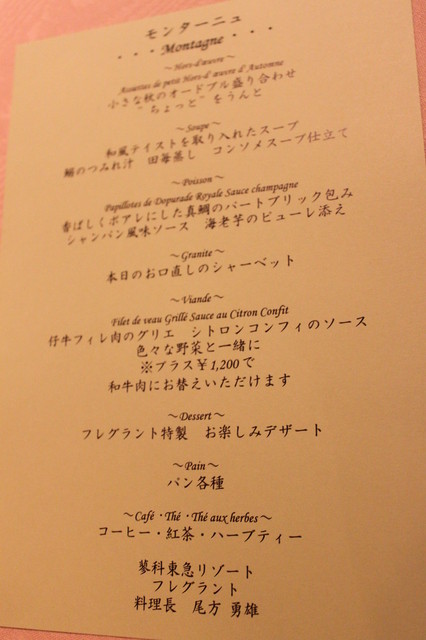 モンターニュ
・・・Montagne・・・
～Hors-d'œuvre～
Assiettes de petit Hors-d'œuvre d'Automne
小さな秋のオードブル盛り合わせ
“ちょっと”をうんと
～Soupe～
和風テイストを取り入れたスープ
鰯のつみれ汁　田毎蒸し　コンソメスープ仕立て
～Poisson～
Papillotes de Dopurade Royale Sauce champagne
香ばしくポアレにした真鯛のパートブリック包み
シャンパン風味ソース　海老芋のピューレ添え
～Granite～
本日のお口直しのシャーベット
～Viande～
Filet de veau Grillé Sauce au Citron Confit
仔牛フィレ肉のグリエ　シトロンコンフィのソース
色々な野菜と一緒に
※プラス￥1,200で
和牛肉にお替えいただけます
～Dessert～
フレグラント特製　お楽しみデザート
～Pain～
パン各種
～Café・Thé・Thé aux herbes～
コーヒー・紅茶・ハーブティー
蓼科東急リゾート
フレグラント
料理長　尾方 勇雄